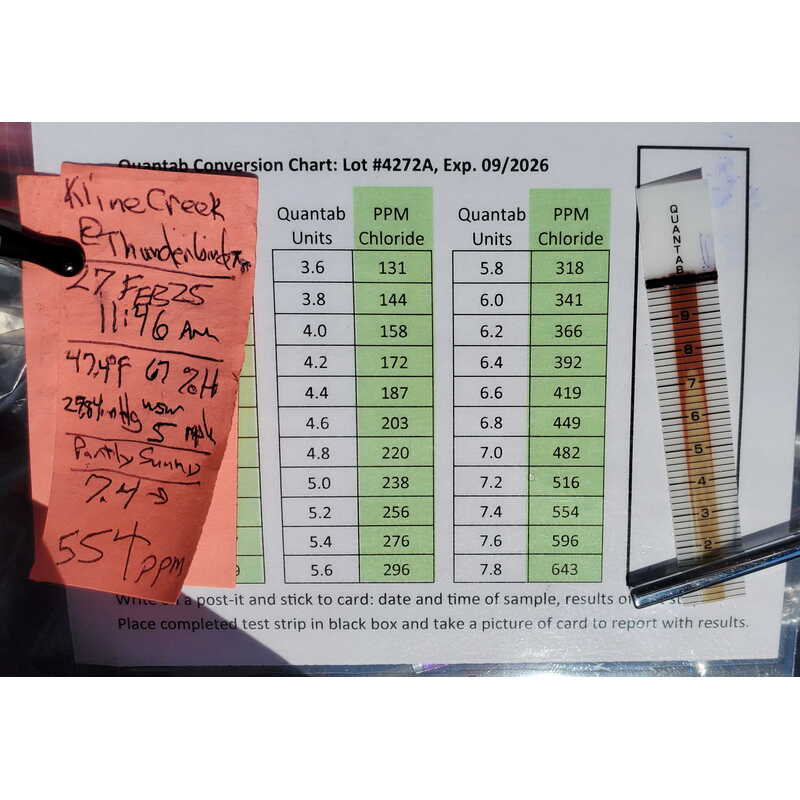 Quantab Conversion Chart: Lot #4272A, Exp. 09/2026
Kline Creek
@ Thunderbird
27 FEB 25
11:46 Am
47.4°F 67 %H
WSW
5 mph
Partly Sunny
7.4 →
554 ppm
Quantab Units PPM Chloride Quantab Units PPM Chloride
3.6 131 5.8 318
3.8 144 6.0 341
4.0 158 6.2 366
4.2 172 6.4 392
4.4 187 6.6 419
4.6 203 6.8 449
4.8 220 7.0 482
5.0 238 7.2 516
5.2 256 7.4 554
5.4 276 7.6 596
5.6 296 7.8 643
9
QUANTAB
9
8
7
6
5
4
3
2
Write on a post-it and stick to card: date and time of sample, results of
Place completed test strip in black box and take a picture of card to report with results.